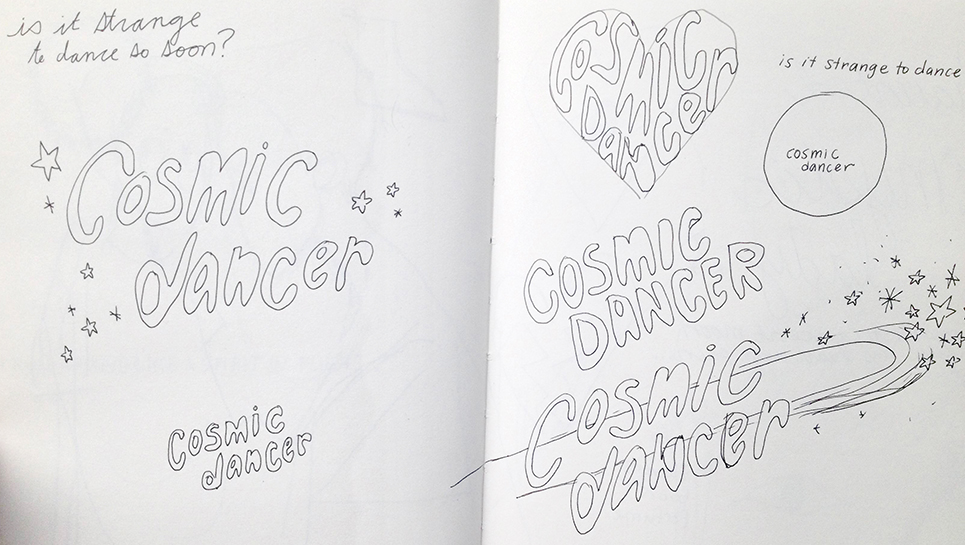 is it strange
to dance so soon?
Cosmic
dancer
cosmic
dancer
Cosmic
Dancer
is it strange to dance
cosmic
dancer
COSMIC
DANCER
Cosmic
dancer